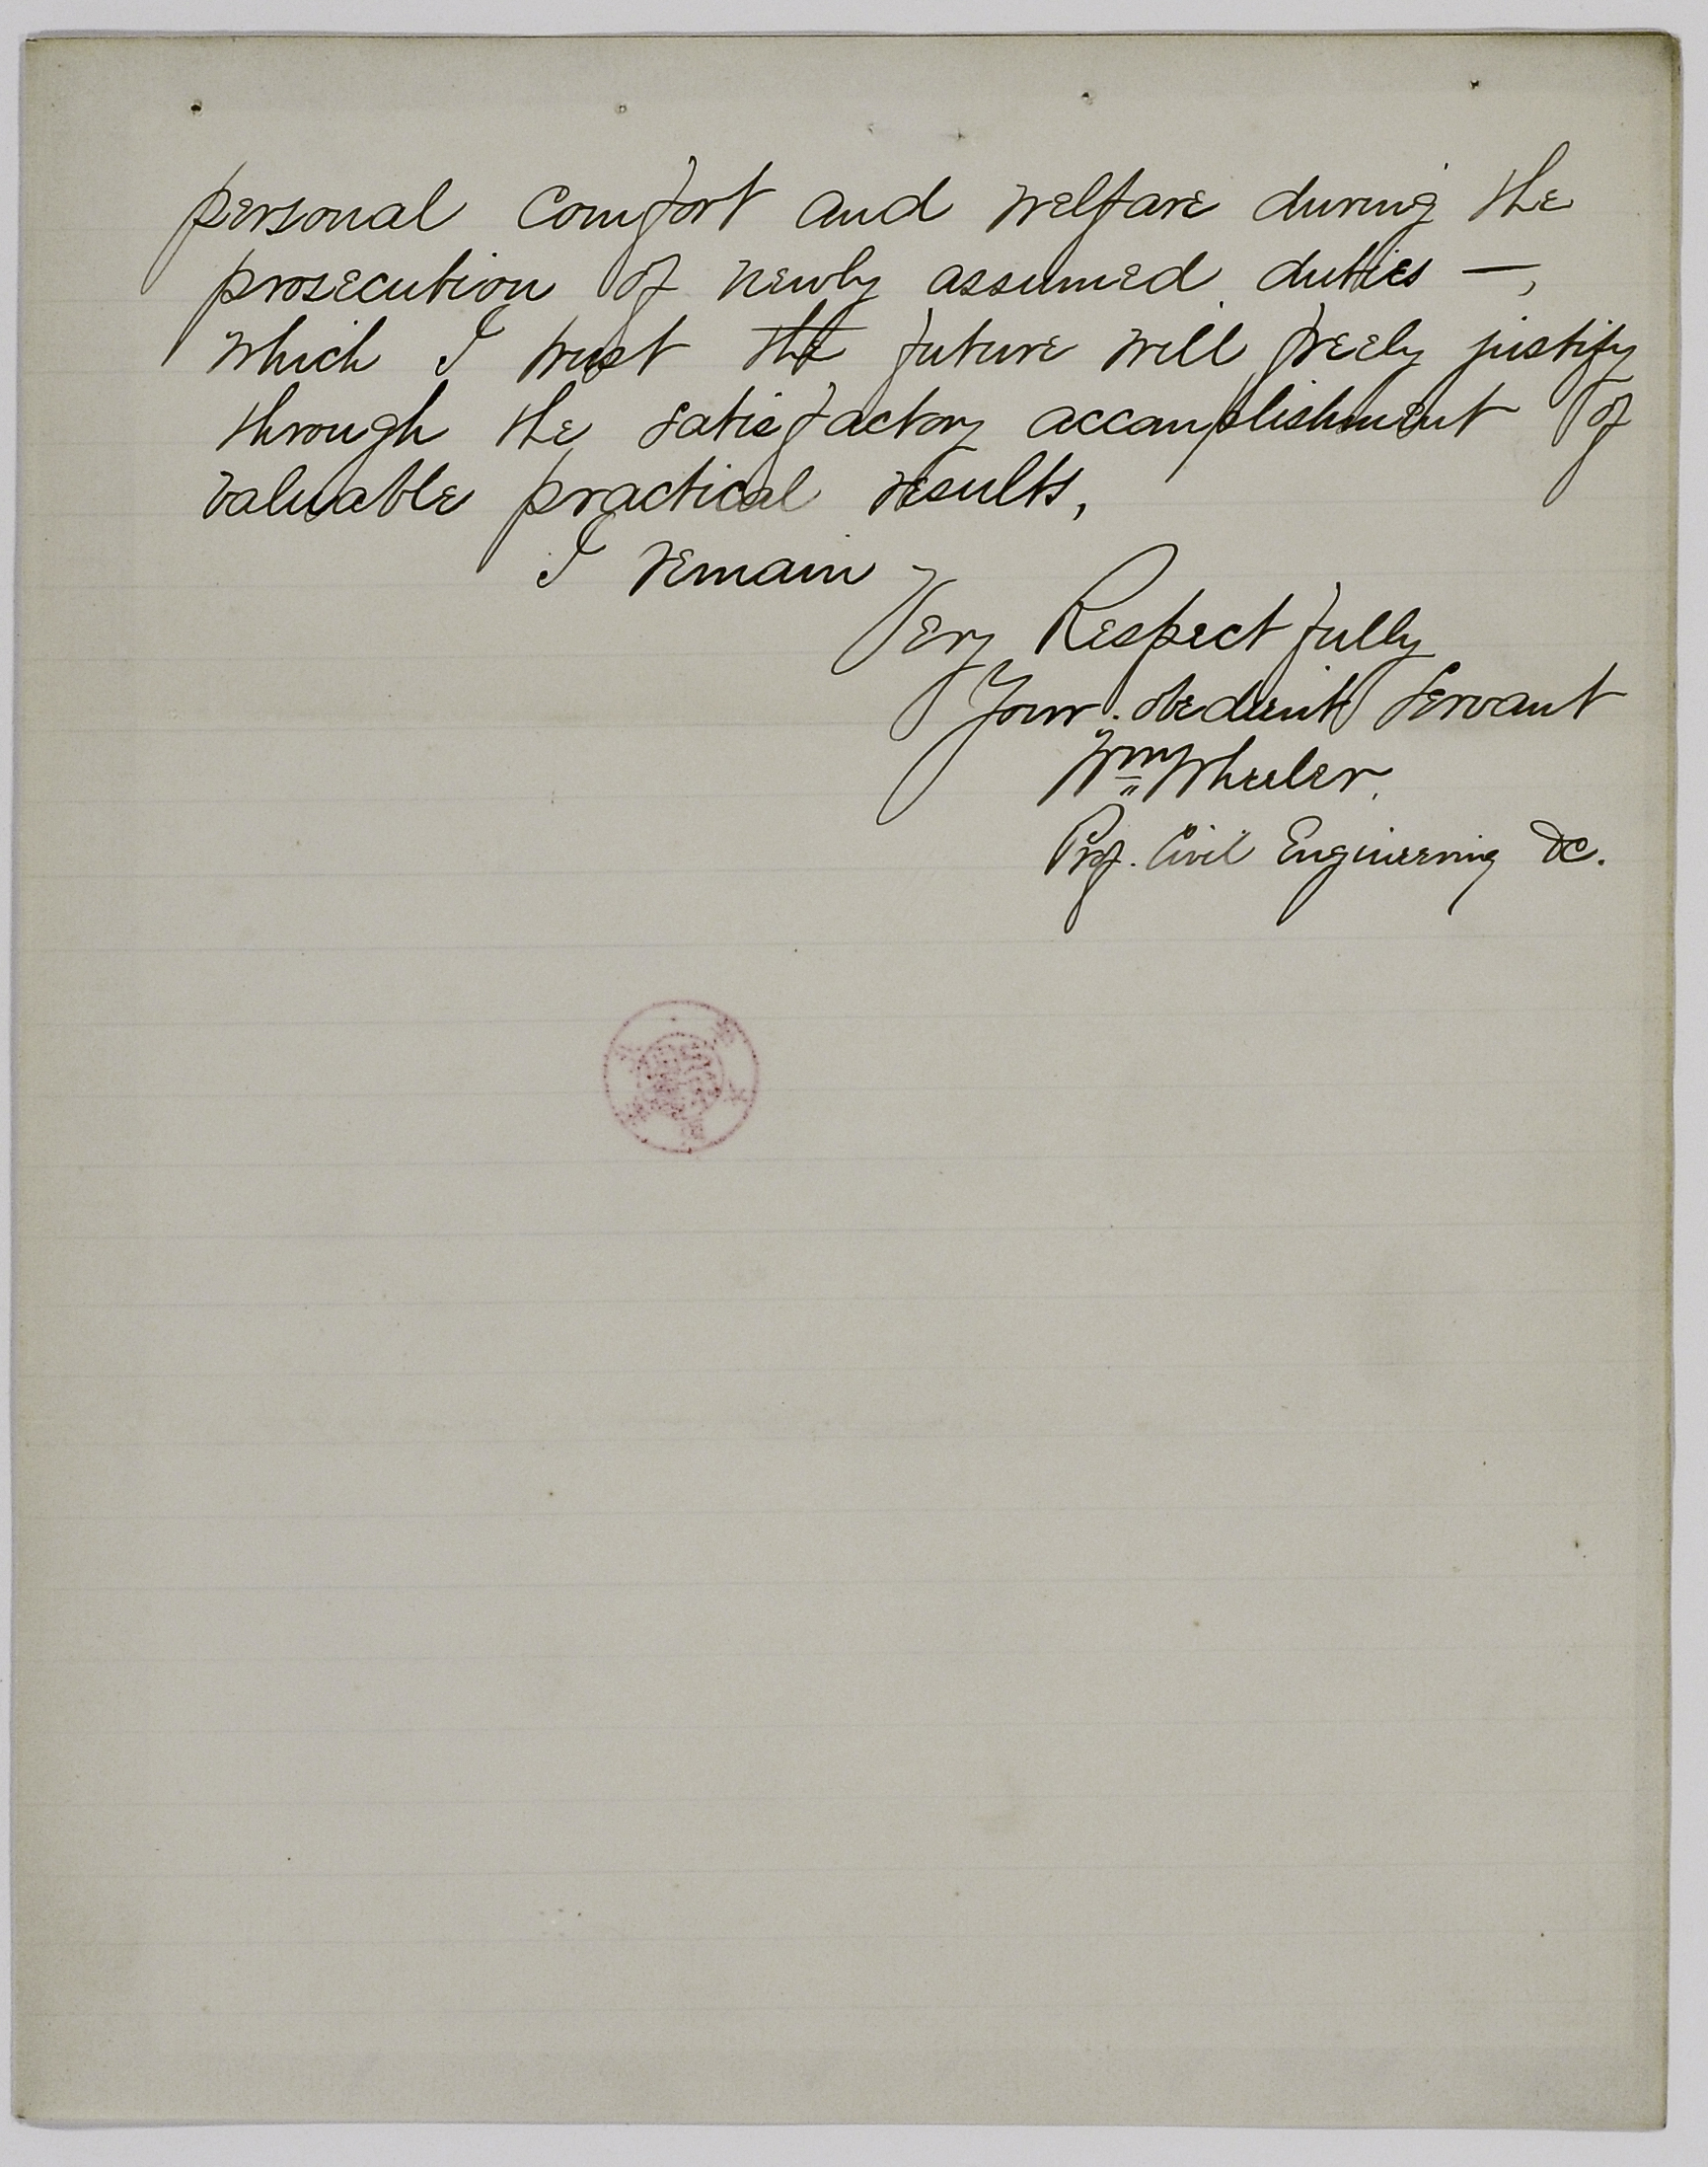 personal comfort and welfare during the
prosecution of newly assumed duties —,
which I trust the future will freely justify
through the satisfactory accomplishment of
valuable practical results,
I remain
Very Respectfully
Your obedient servant
Wm Wheeler.
Prof. Civil Engineering &c.